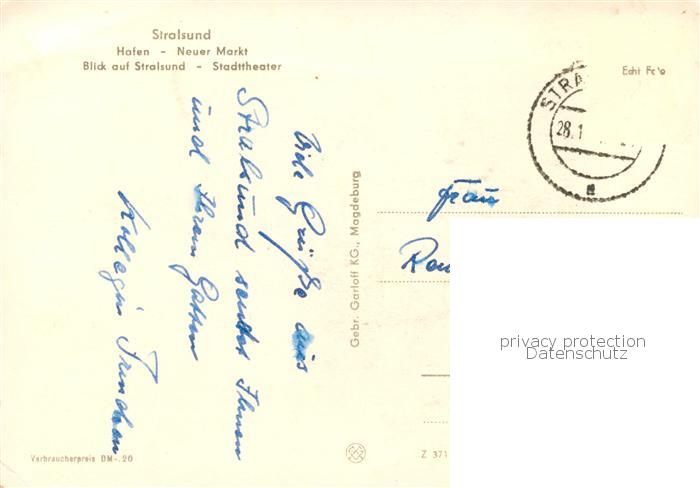 Stralsund
Hafen - Neuer Markt
Blick auf Stralsund - Stadttheater
Viele Grüße aus
Stralsund sendet Ihnen
und Ihrem Gatten
Kollegin
Verbraucherpreis DM -.20
Gebr. Garloff KG., Magdeburg
Z 371
Echt Foto
STRA
28.1
a
Frau
privacy protection
Datenschutz